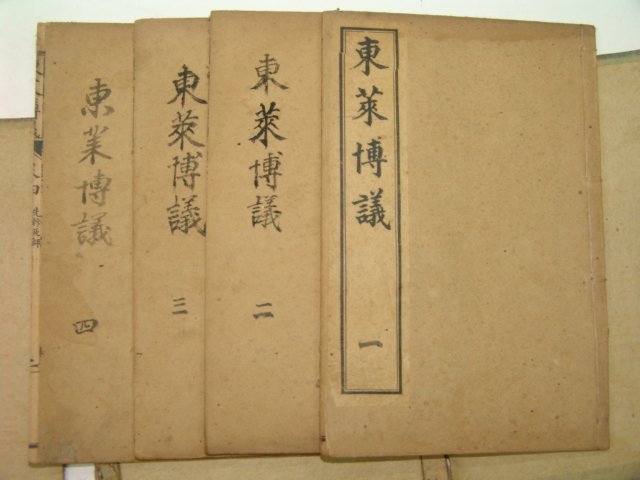 東萊博議
一
東萊博議
二
東萊博議
三
東萊博議
四